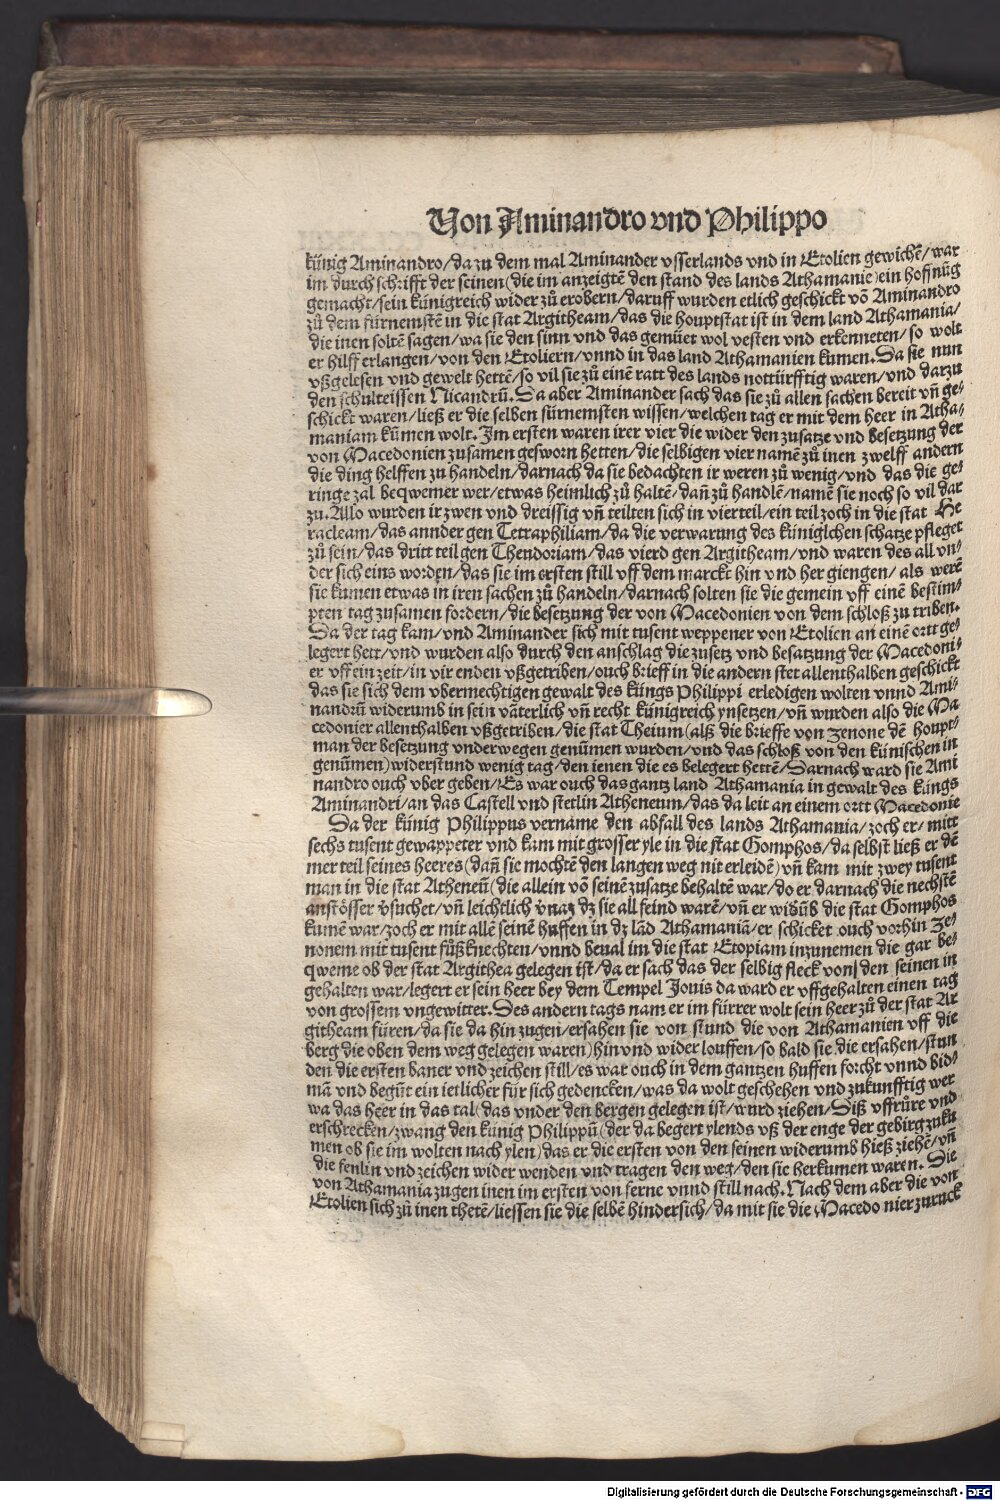 Von Aminandro vnd Philippo
künig Aminandro/da zu dem mal Aminander vsserlands vnd in Etolien gewichē/war
im durch schrifft der seinen (die im anzeigtē den stand des lands Athamanie) ein hoffnūg
gemacht/sein künigreich wider zů erobern/daruff wurden etlich geschickt vō Aminandro
zů dem fürnemstē in die stat Argitheam/das die houptstat ist in dem land Athamania/
die inen soltē sagen/wa sie den sinn vnd das gemüet wol vesten vnd erkenneten/so wolt
er hilff erlangen/von den Etoliern/vnnd in das land Athamanien kumen. Da sie nun
vßgelesen vnd gewelt hettē/so vil sie zů einē ratt des lands nottürfftig waren/vnd darzu
den schulteissen Nicandrū. Da aber Aminander sach das sie zů allen sachen bereit vn̄ ge-
schickt waren/ließ er die selben fürnemsten wissen/welchen tag er mit dem heer in Atha-
maniam kūmen wolt. Im ersten waren irer vier die wider den zusatze vnd besetzung der
von Macedonien zusamen gesworn hetten/die selbigen vier namē zů inen zwelff andern
die ding helffen zu handeln/darnach da sie bedachten ir weren zů wenig/vnd das die ge-
ringe zal beqwemer wer/etwas heimlich zů haltē/dan̄ zů handlē/namē sie noch so vil dar
zu. Also wurden ir zwen vnd dreissig vn̄ teilten sich in vierteil/ein teil zoch in die stat He
racleam/das annder gen Tetraphiliam/da die verwarung des küniglichen schatze pfleget
zů sein/das dritt teil gen Theudoriam/das vierd gen Argitheam/vnd waren des all vn-
der sich eins worden/das sie im ersten still vff dem marckt hin vnd her giengen/als werē
sie kumen etwas in iren sachen zů handeln/darnach solten sie die gemein vff einē bestim-
pten tag zusamen fordern/die besetzung der von Macedonien von dem schloß zu triben.
Da der tag kam/vnd Aminander sich mit tusent weppener von Etolien an einē ortt ge-
legert hett/vnd wurden also durch den anschlag die zusetz vnd besatzung der Macedoni-
er vff ein zeit/in vir enden vßgetriben/ouch brieff in die andern stet allenthalben geschickt
das sie sich dem vbermechtigen gewalt des küngs Philippi erledigen wolten vnnd Ami-
nandrū widerumb in sein väterlich vn̄ recht künigreich ynsetzen/vn̄ wurden also die Ma
cedonier allenthalben vßgetriben/die stat Theium (alß die brieffe von Zenone dē houpt-
man der besetzung vnderwegen genūmen wurden/vnd das schloß von den künischen in
genūmen) widerstund wenig tag/den ienen die es belegert hettē/Darnach ward sie Ami
nandro ouch vber geben/Es war ouch das gantz land Athamania in gewalt des küngs
Aminandri/an das Castell vnd stetlin Atheneum/das da leit an einem ortt Macedonie
Da der künig Philippus vername den abfall des lands Athamania/zoch er/mitt
sechs tusent gewappeter vnd kam mit grosser yle in die stat Gomphos/da selbst ließ er dē
mer teil seines heeres (dan̄ sie mochtē den langen weg nit erleidē) vn̄ kam mit zwey tusent
man in die stat Atheneū (die allein vō seinē zusatze behaltē war/do er darnach die nechstē
anstösser v̄suchet/vn̄ leichtlich vnaz dz sie all feind warē/vn̄ er widūb die stat Gomphos
kumē war/zoch er mit allē seinē huffen in dz lād Athamaniā/er schicket ouch vorhin Ze-
nonem mit tusent fůßknechten/vnnd beual im die stat Etopiam inzunemen die gar be-
qweme ob der stat Argithea gelegen ist/da er sach das der selbig fleck von den seinen in
gehalten war/legert er sein heer bey dem Tempel Jouis da ward er vffgehalten einen tag
von grossem vngewitter. Des andern tags nam er im fürrer wolt sein heer zů der stat Ar
githeam füren/da sie da hin zugen/ersahen sie von stund die von Athamanien vff die
berg die oben dem weg gelegen waren) hin vnd wider louffen/so bald sie die ersahen/stun
den die ersten baner vnd zeichen still/es war ouch in dem gantzen huffen forcht vnnd bid-
mā vnd begūt ein ietlicher für sich gedencken/was da wolt geschehen vnd zukunfftig wer
wa das heer in das tal (das vnder den bergen gelegen ist/wurd ziehen/Diß vffrůre vnd
erschrecken/zwang den künig Philippū (der da begert ylends vß der enge der gebirg zukū
men ob sie im wolten nach ylen) das er die ersten von den seinen widerumb hieß ziehē/vn̄
die fenlin vnd zeichen wider wenden vnd tragen den weg/den sie herkumen waren. Die
von Athamania zugen inen im ersten von ferne vnnd still nach. Nach dem aber die von
Etolien sich zů inen thetē/liessen sie die selbē hindersich/da mit sie die Macedo nier zuruck
Digitalisierung gefördert durch die Deutsche Forschungsgemeinschaft - DFG